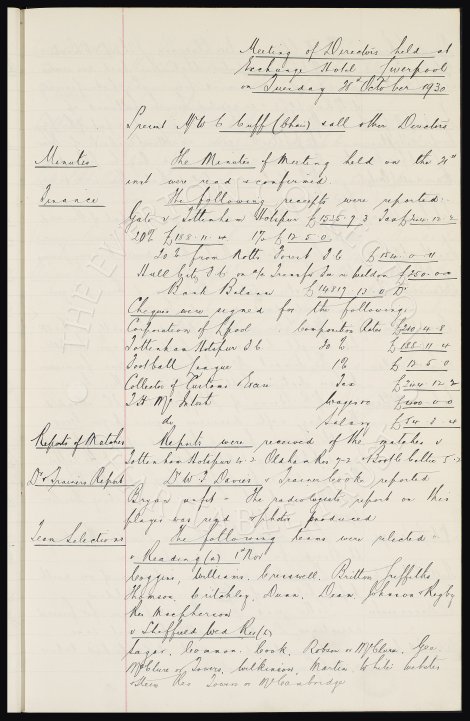 Meeting of Directors held at
Exchange Hotel Liverpool
on Tuesday 28th October 1930
Present Mr W C Cuff (Chair) & all other Directors
Minutes
The Minutes of Meeting held on the 21st
inst were read & confirmed.
Finance
The following receipts were reported:-
Gate v Tottenham Hotspur £1525-9-3 Tax £244-12-2
20% £188-11-4 1% £12-5-0
20% from Notts Forest F C £184-0-11
Hull City F C on a/c Transfer Fee £250-0-0
Bank Balance £14817-13-0 Dr
Cheques were signed for the following:
Corporation of L'pool Composition Rates £240-4-8
Tottenham Hotspur F C 20% £188-11-4
Football League 1% £12-5-0
Collector of Customs & Excise Tax £244-12-2
T H McIntosh Wages £400-0-0
do Salary £54-3-4
Reports of Matches
Reports were received of the matches v
Tottenham Hotspur 4-2 Oldham Res & Bootle Celtic 5-2
Dr & Trainers Report
Dr W F Davies & Trainer Cooke reported
Bryan unfit - The radiologists report on this
player was read & photos produced
Team Selections
The following teams were selected:-
v Reading (a) 1st Nov
Coggins, Williams, Cresswell, Britton, Griffiths,
Thomson, Critchley, Dunn, Dean, Johnson & Rigby
Res Macpherson
v Sheffield Wed Res (h)
Sagar, Common, Cook, Robson or McClure, Gee
McClure or Towers, Wilkinson, Martin, White, Webster
& Stein Res Towers or McCambridge